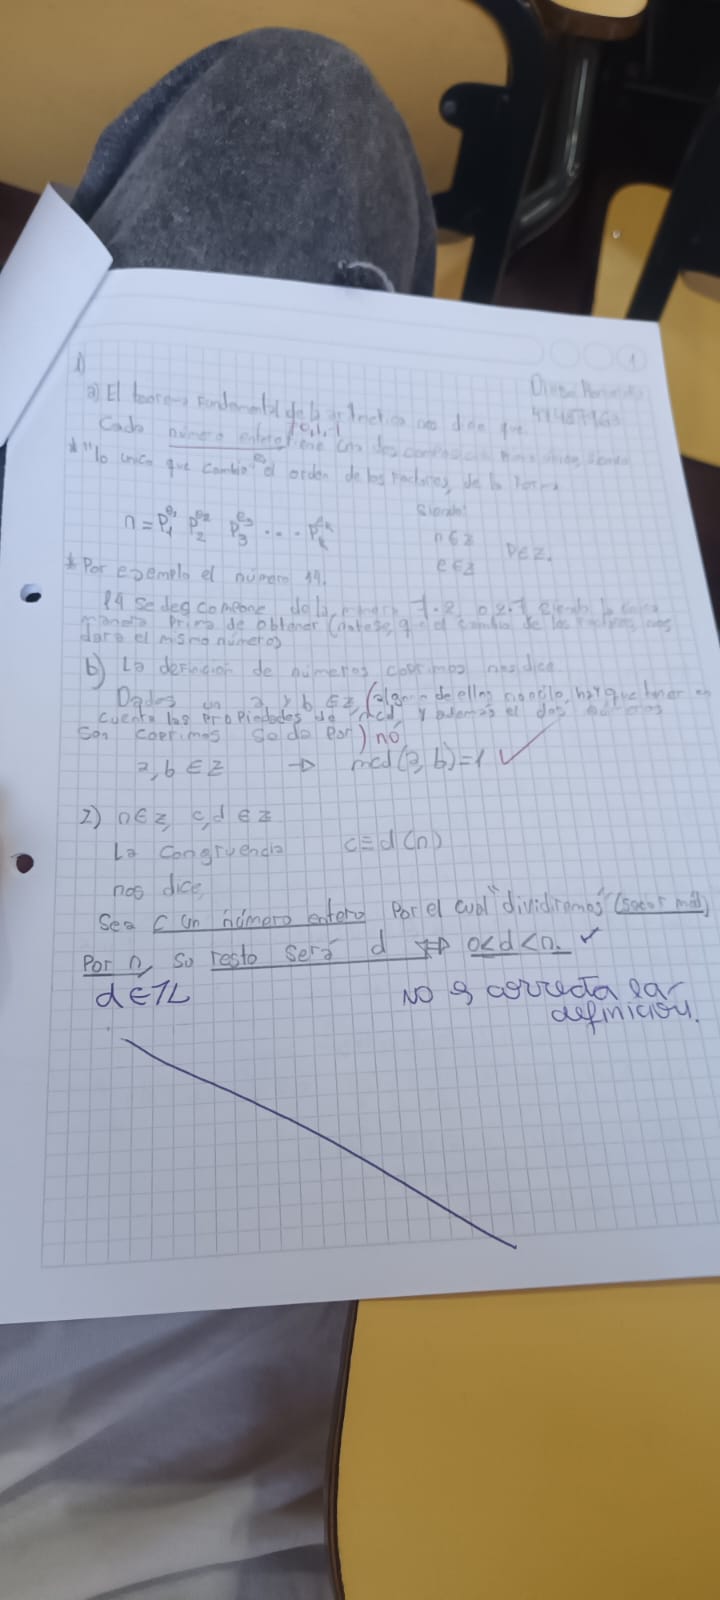 1
1)
a) El teorema Fundamental de la aritmetica nos dice que
≠0,1,-1
Cada número entero tiene una descomposición
* "lo unico que cambia es el orden de los factores, de la forma
Siendo:
n = p₁^e₁ p₂^e₂ p₃^e₃ ... p_k^e_k
n ∈ z
e ∈ z
p ∈ z.
* Por ejemplo el número 14.
14 se descompone de la manera 7.2 o 2.7 siendo la única
manera prima de obtener (notese que el cambio de los factores nos
dara el mismo número)
b) La definicion de números coprimos nos dice
Dados un a y b ∈ z, (alguno de ellos no nulo, hay que tener en
cuenta las propiedades de mcd, y además el dos números
son coprimos se da por) no
a, b ∈ Z → mcd(a, b)=1 ✓
2) n ∈ z, c, d ∈ z
La congruencia c ≡ d (n)
nos dice,
Sea c un número entero Por el cual "dividiremos"
Por n, su resto será d ⇔ 0<d<n. ✓
d ∈ Z
NO es correcta la
definición.